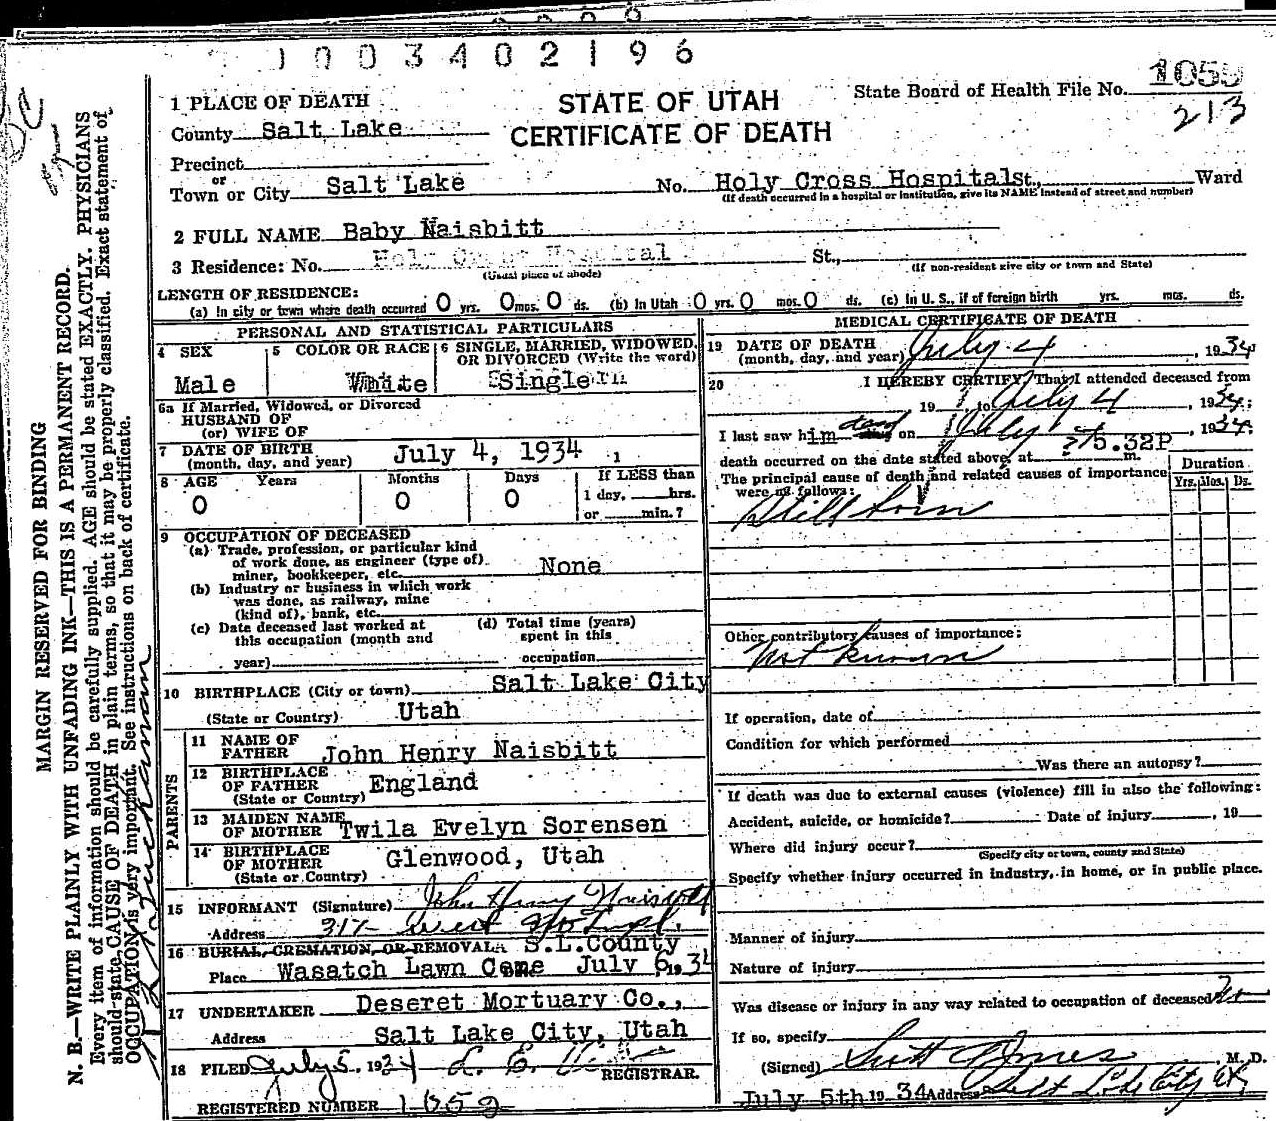 1003402196
1 PLACE OF DEATH
STATE OF UTAH
CERTIFICATE OF DEATH
State Board of Health File No. 1055
213
County Salt Lake
Precinct
or
Town or City Salt Lake No. Holy Cross Hospital St., Ward
(If death occurred in a hospital or institution, give its NAME instead of street and number)
2 FULL NAME Baby Naisbitt
3 Residence: No. Holy Cross Hospital St.,
(Usual place of abode) (If non-resident give city or town and State)
LENGTH OF RESIDENCE:
(a) In city or town where death occurred 0 yrs. 0 mos. 0 ds. (b) In Utah 0 yrs. 0 mos. 0 ds. (c) In U. S., if of foreign birth yrs. mos. ds.
PERSONAL AND STATISTICAL PARTICULARS
4 SEX
Male
5 COLOR OR RACE
White
6 SINGLE, MARRIED, WIDOWED, OR DIVORCED (Write the word)
Single
6a If Married, Widowed, or Divorced
HUSBAND OF
(or) WIFE OF
7 DATE OF BIRTH
(month, day, and year) July 4, 1934
8 AGE Years Months Days If LESS than
0 0 0 1 day, hrs.
or min.?
9 OCCUPATION OF DECEASED
(a) Trade, profession, or particular kind
of work done, as engineer (type of),
miner, bookkeeper, etc. None
(b) Industry or business in which work
was done, as railway, mine
(kind of), bank, etc.
(c) Date deceased last worked at
this occupation (month and
year)
(d) Total time (years)
spent in this
occupation
10 BIRTHPLACE (City or town) Salt Lake City
(State or Country) Utah
PARENTS
11 NAME OF
FATHER John Henry Naisbitt
12 BIRTHPLACE
OF FATHER England
(State or Country)
13 MAIDEN NAME
OF MOTHER Twila Evelyn Sorensen
14 BIRTHPLACE
OF MOTHER Glenwood, Utah
(State or Country)
15 INFORMANT (Signature) John Henry Naisbitt
Address 317 West
16 BURIAL, CREMATION, OR REMOVAL S.L.County
Place Wasatch Lawn Ceme July 6, 1934
17 UNDERTAKER Deseret Mortuary Co.,
Address Salt Lake City, Utah
18 FILED July 5, 1934 L. E.
REGISTRAR.
REGISTERED NUMBER 1052
MEDICAL CERTIFICATE OF DEATH
19 DATE OF DEATH
(month, day, and year) July 4, 1934
20 I HEREBY CERTIFY, That I attended deceased from
19 to July 4, 1934;
I last saw him dead on July 4, 1934;
death occurred on the date stated above, at 5.32P m.
The principal cause of death and related causes of importance
were as follows:
Duration
Yrs. Mos. Ds.
Stillborn
Other contributory causes of importance:
Not known
If operation, date of
Condition for which performed
Was there an autopsy?
If death was due to external causes (violence) fill in also the following:
Accident, suicide, or homicide? Date of injury, 19
Where did injury occur?
(Specify city or town, county and State)
Specify whether injury occurred in industry, in home, or in public place.
Manner of injury
Nature of injury
Was disease or injury in any way related to occupation of deceased? No
If so, specify
(Signed) Jones, M. D.
July 5th 1934 Address Salt Lake City Ut.
MARGIN RESERVED FOR BINDING
N. B.—WRITE PLAINLY WITH UNFADING INK—THIS IS A PERMANENT RECORD.
Every item of information should be carefully supplied. AGE should be stated EXACTLY. PHYSICIANS
should state CAUSE OF DEATH in plain terms, so that it may be properly classified. Exact statement of
OCCUPATION is very important. See instructions on back of certificate.